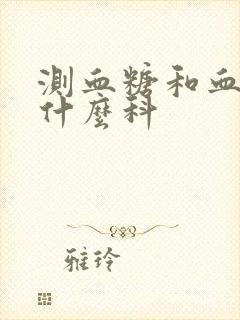 測血糖和血
什麼科
雅玲